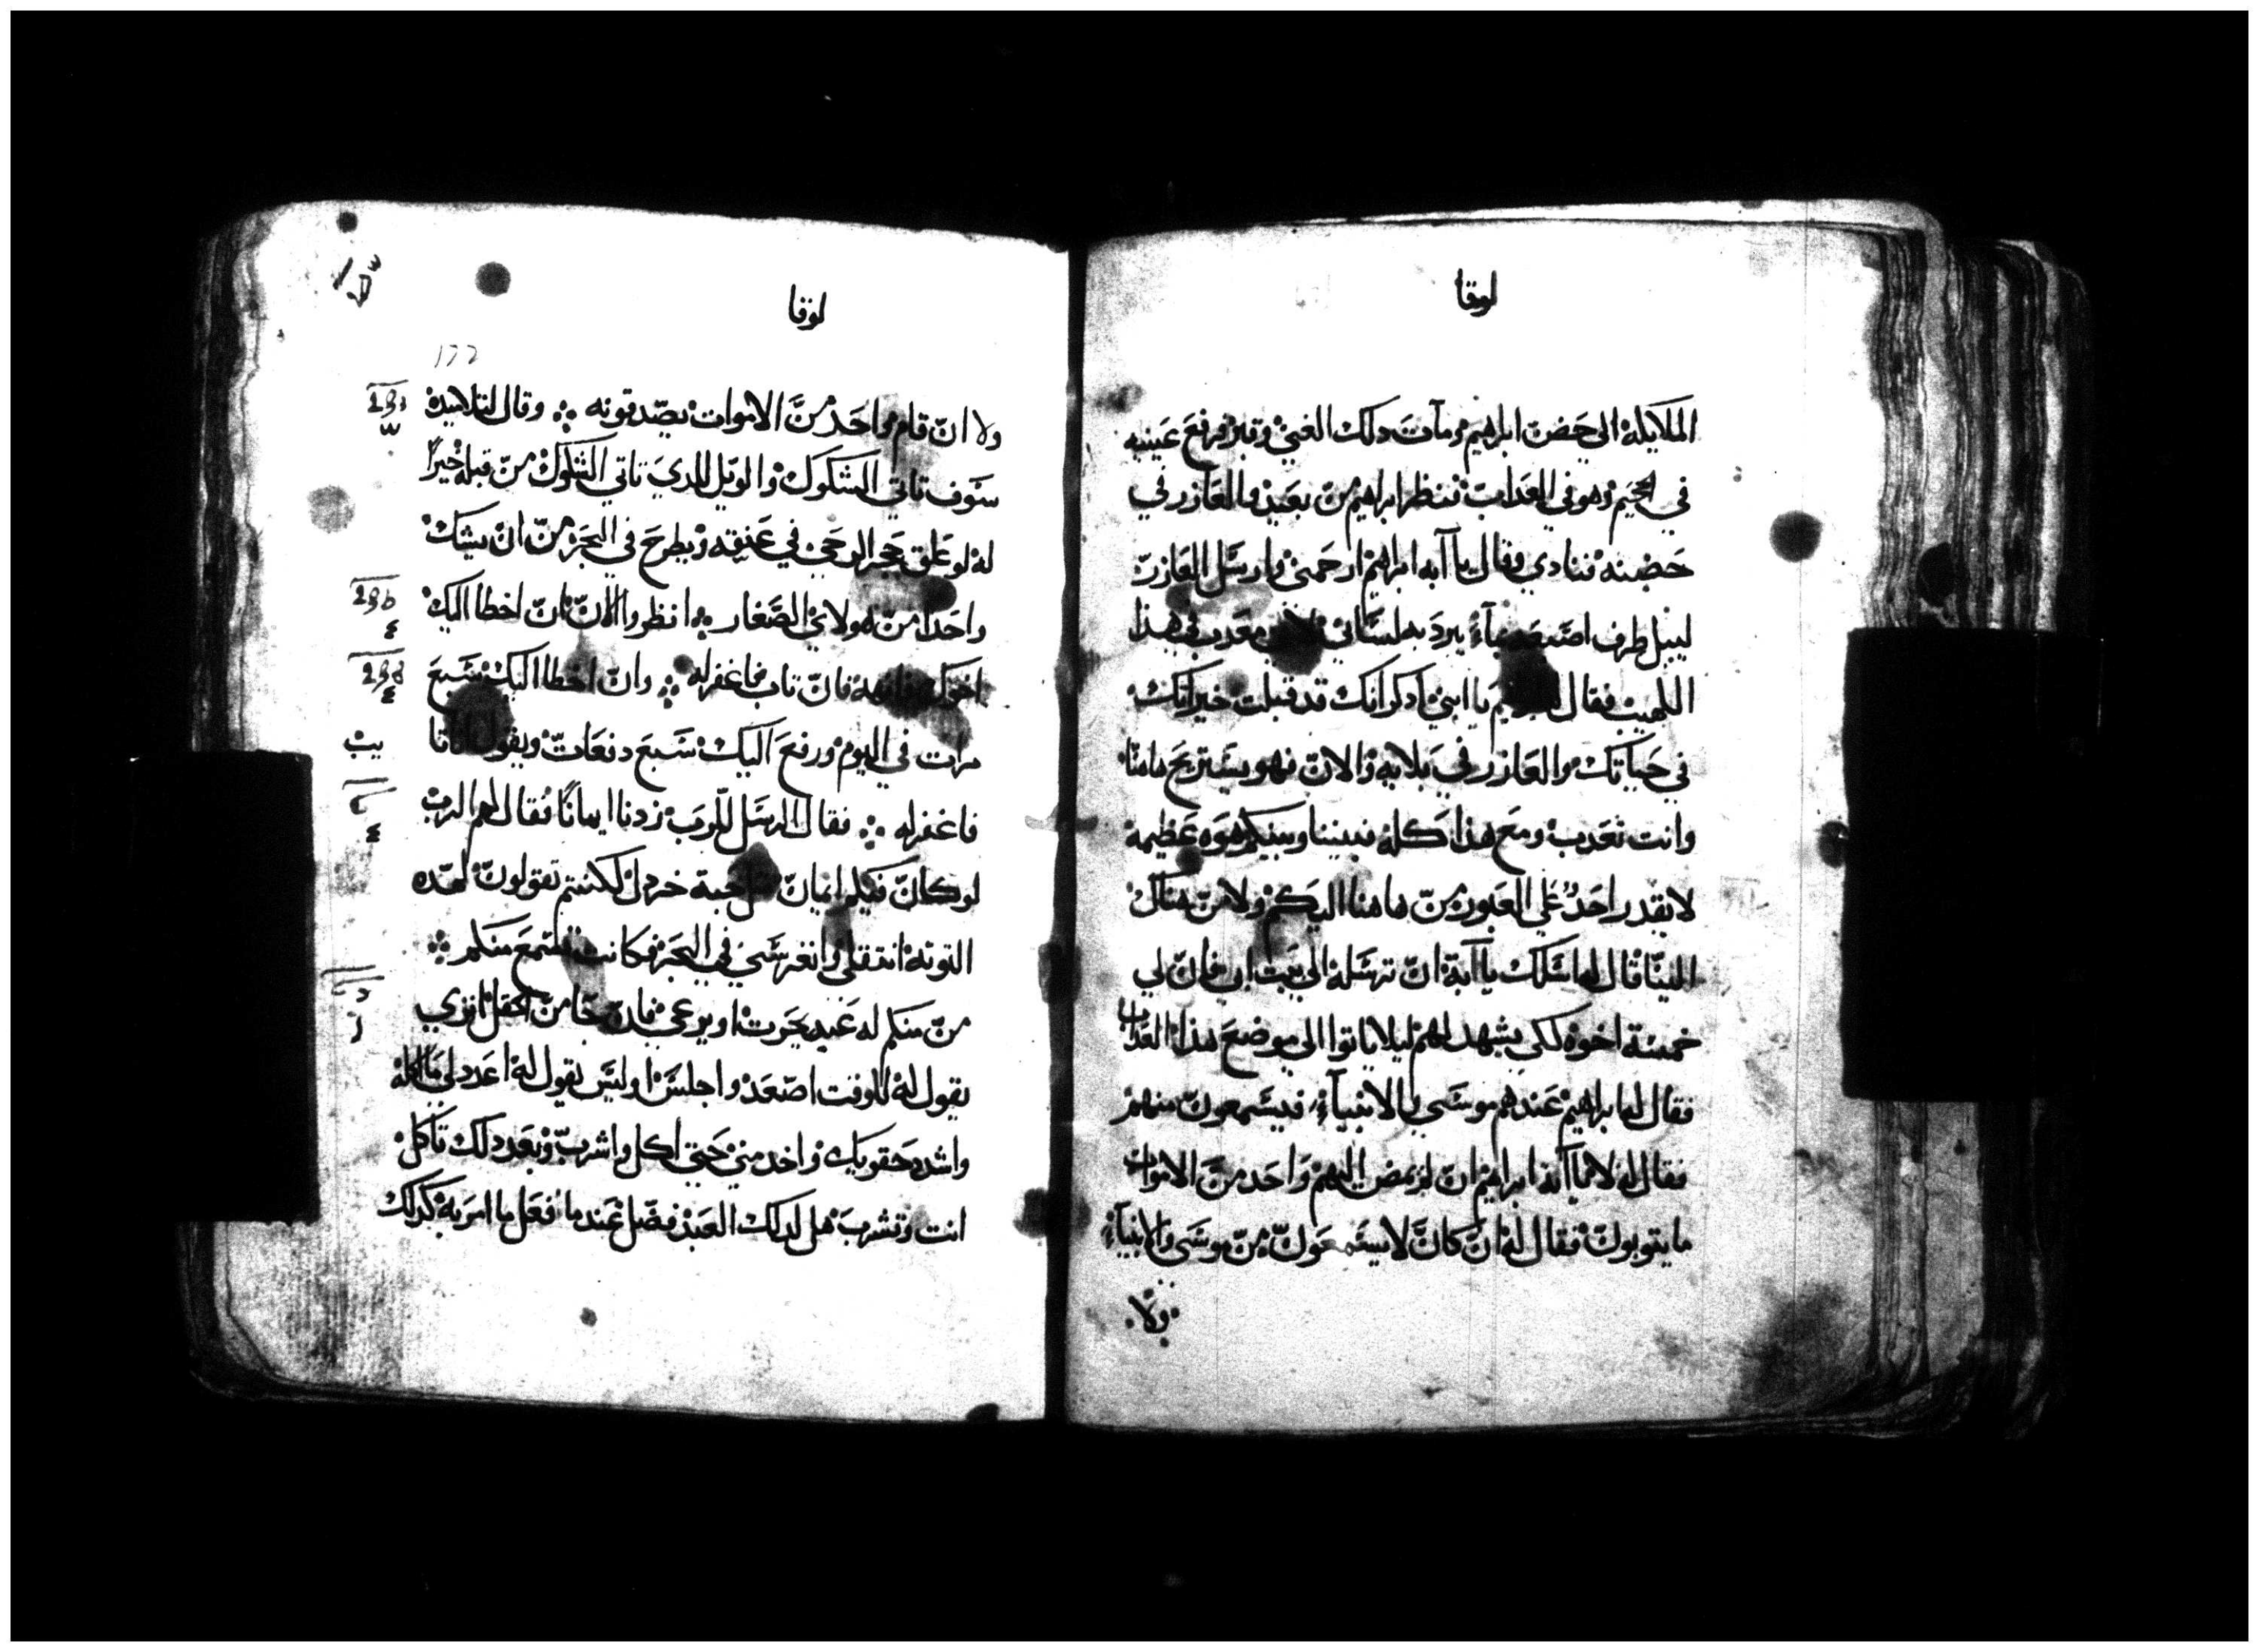 لوقا
الملايكة الي حضن ابراهيم ومات دلك الغني وقبر فرفع عينيه
في الجحيم وهو في العداب فنظر ابراهيم من بعيد والعازر في
حضنه فنادي وقال يا ابه ابراهيم ارحمني وارسل العازر
ليبل طرف اصبعه بماء يبرد به لساني معدب في هذا
اللهيب فقال يا ابني ادكر انك قد قبلت خيراتك
في حياتك والعازر في بلايه والان فهو يستريح هاهنا
وانت تعدب ومع هذا كله فبيننا وبينكم هوه عظيمة
لا يقدر احد علي العبور من هاهنا اليكم ولا من هناك
الينا قال له اسلك يا ابة ان ترسله الي بيت ابي فان لي
خمسة اخوه لكي يشهد لهم ليلا ياتوا الي موضع هذا العداب
فقال له ابراهيم عندهم موسي والانبياء فيسمعون منهم
فقال له لا يا ابة ابراهيم ان لم يمض اليهم واحد من الاموات
ما يتوبون فقال له ان كان لا يستمعون من موسي والانبياء
ولا
لوقا
١٦٦
ولا ان قام واحد من الاموات يصدقونه وقال لتلاميده
سوف تاتي الشكوك والويل للدي تاتي الشكوك من قبله خيرا
له لو علق حجر الرحي في عنقه ويطرح في البحر من ان يشكك
واحدا من هولاي الصغار انظروا الان ان اخطا اليك
اخوك فانهه فان تاب فاغفر له وان اخطا اليك سبع
مرات في اليوم ورفع اليك سبع دفعات ويقول
فاغفر له فقال الرسل للرب زدنا ايمانا فقال لهم الرب
لو كان فيكم ايمان حبة خردل لكنتم تقولون لهده
التوته انقلعي وانغرسي في البحر فكانت تستمع منكم
من منكم له عبد يحرت او يرعي فان جا من الحقل
يقول له للوقت اصعد واجلس او ليس يقول له اعدد لي ما اكله
واشدد حقويك واخدمني حتي اكل واشرب وبعد دلك تاكل
انت وتشرب هل لدلك العبد فضل عندما فعل ما امر به كدلك
يب